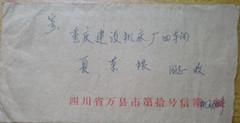 重庆建设机床厂四车间
夏荣根 同志收
四川省万县市第拾号信箱